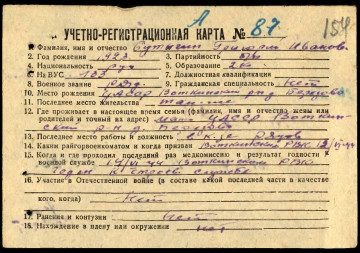 л
УЧЕТНО-РЕГИСТРАЦИОННАЯ КАРТА № 87
154
1. Фамилия, имя и отчество Григорий Иванов.
2. Год рождения 1923 3. Партийность б/п
4. Национальность Рус 5. Образование
6. На ВУС 133 7. Должностная квалификация
8. Военное звание 9. Гражданская специальность Нет
10. Место рождения УАССР Воткинский
11. Последнее место жительства там-же
12. Где проживает в настоящее время семья (фамилия, имя и отчество жены или
родителей и точный их адрес) УАССР Воткин-
ский р-н д.
13. Последнее место работы и должность
14. Каким райгорвоенкоматом и когда призван Воткинский РВК
15. Когда и где проходил последний раз медкомиссию и результат годности
к военной службе Воткинском РВК
Годен к строев службе
16. Участие в Отечественной войне (в составе какой последней части в качестве
кого, когда) Нет
17. Ранения и контузии Нет
18. Нахождение в плену или окружении нет